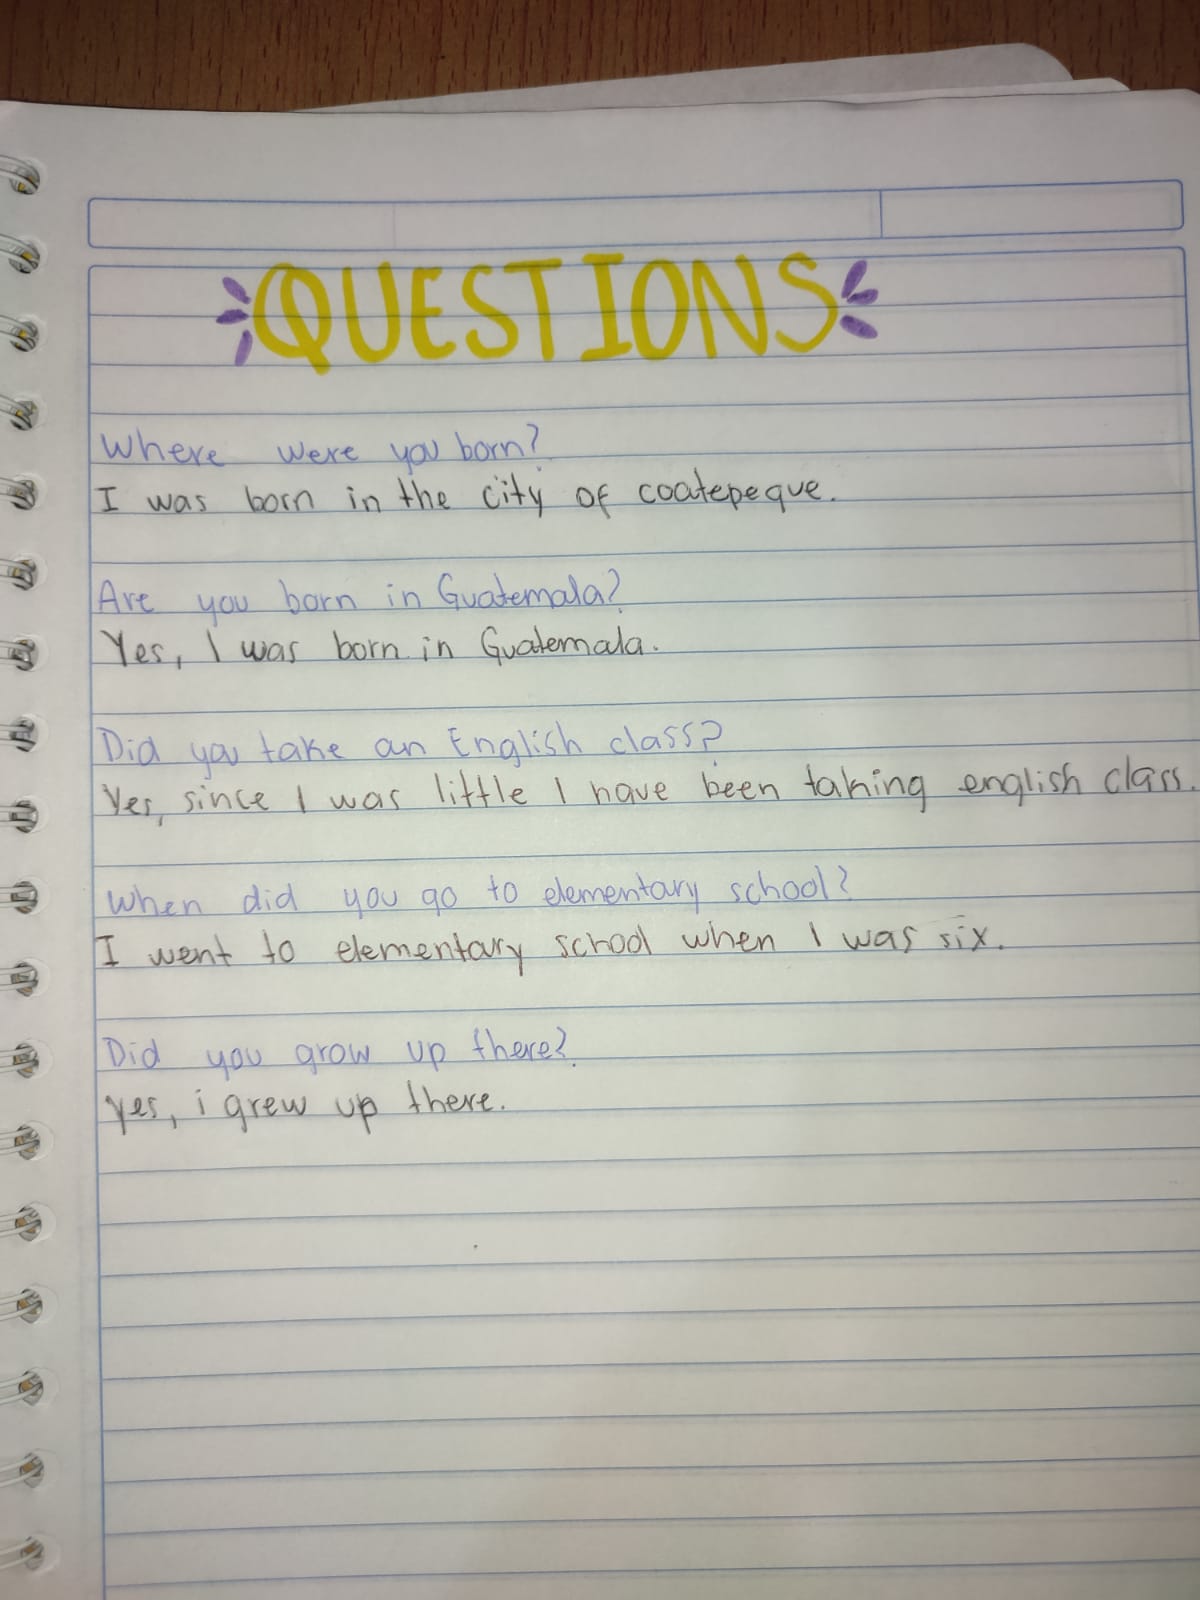 QUESTIONS
Where were you born?
I was born in the city of coatepeque.
Are you born in Guatemala?
Yes, I was born in Guatemala.
Did you take an English class?
Yes, since I was little I have been taking english class.
When did you go to elementary school?
I went to elementary school when I was six.
Did you grow up there?
yes, i grew up there.